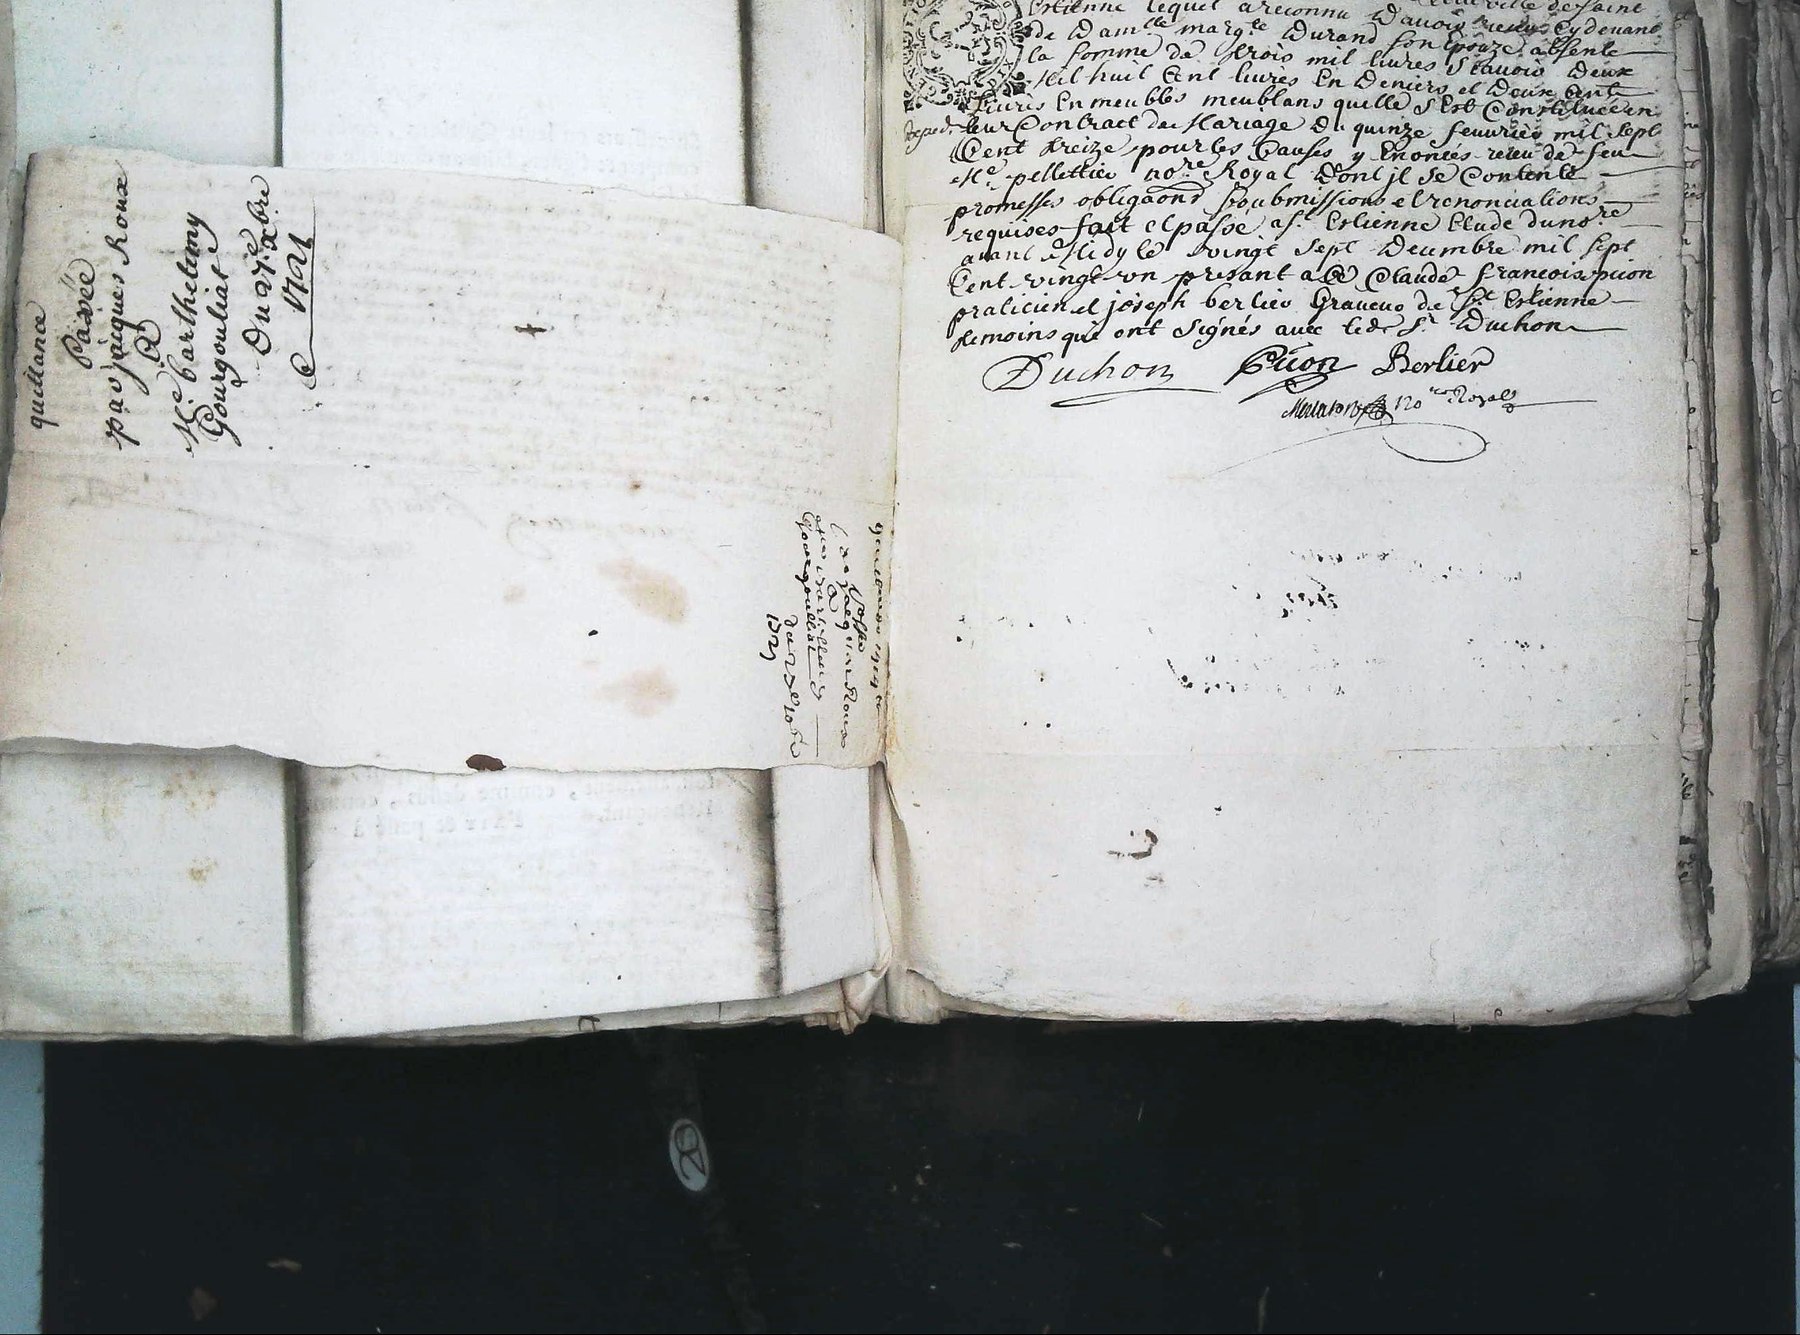 quittance
Passée
par jacques Roux
A
Me. barthelemy
Gourgouliat
Du 27e. xbre
1721
Passée
Jacques Roux
A
barthellemy
Gourgoulliat
du 27e xbre
1721
Estienne lequel a reconnu d'avoir Cydevant
de Damlle margte Durand son Epouze absente
la somme de trois mil livres scavoir Deux
Mil huit Cent livres En Deniers et Deux Cent
livres En meubles meublans quelle s'Est Constituée en
leur Contract de Mariage du quinze feuvrier mil sept
Cent treize pour les Causes y Enoncés receu de feu
Me. pellettier nore. Royal Dont jl se Contente
promesses obligaons soubmissions et renonciations
requises fait et passé a St. Estienne Etude du nore
avant Midy le vingt sept Decembre mil sept
Cent vingt un presant a Ce Claude francois püon
praticien et joseph berlier Graveur de St. Estienne
temoins qui ont signés avec ledt Sr. Duchon
Duchon Püon Berlier
nore Royal